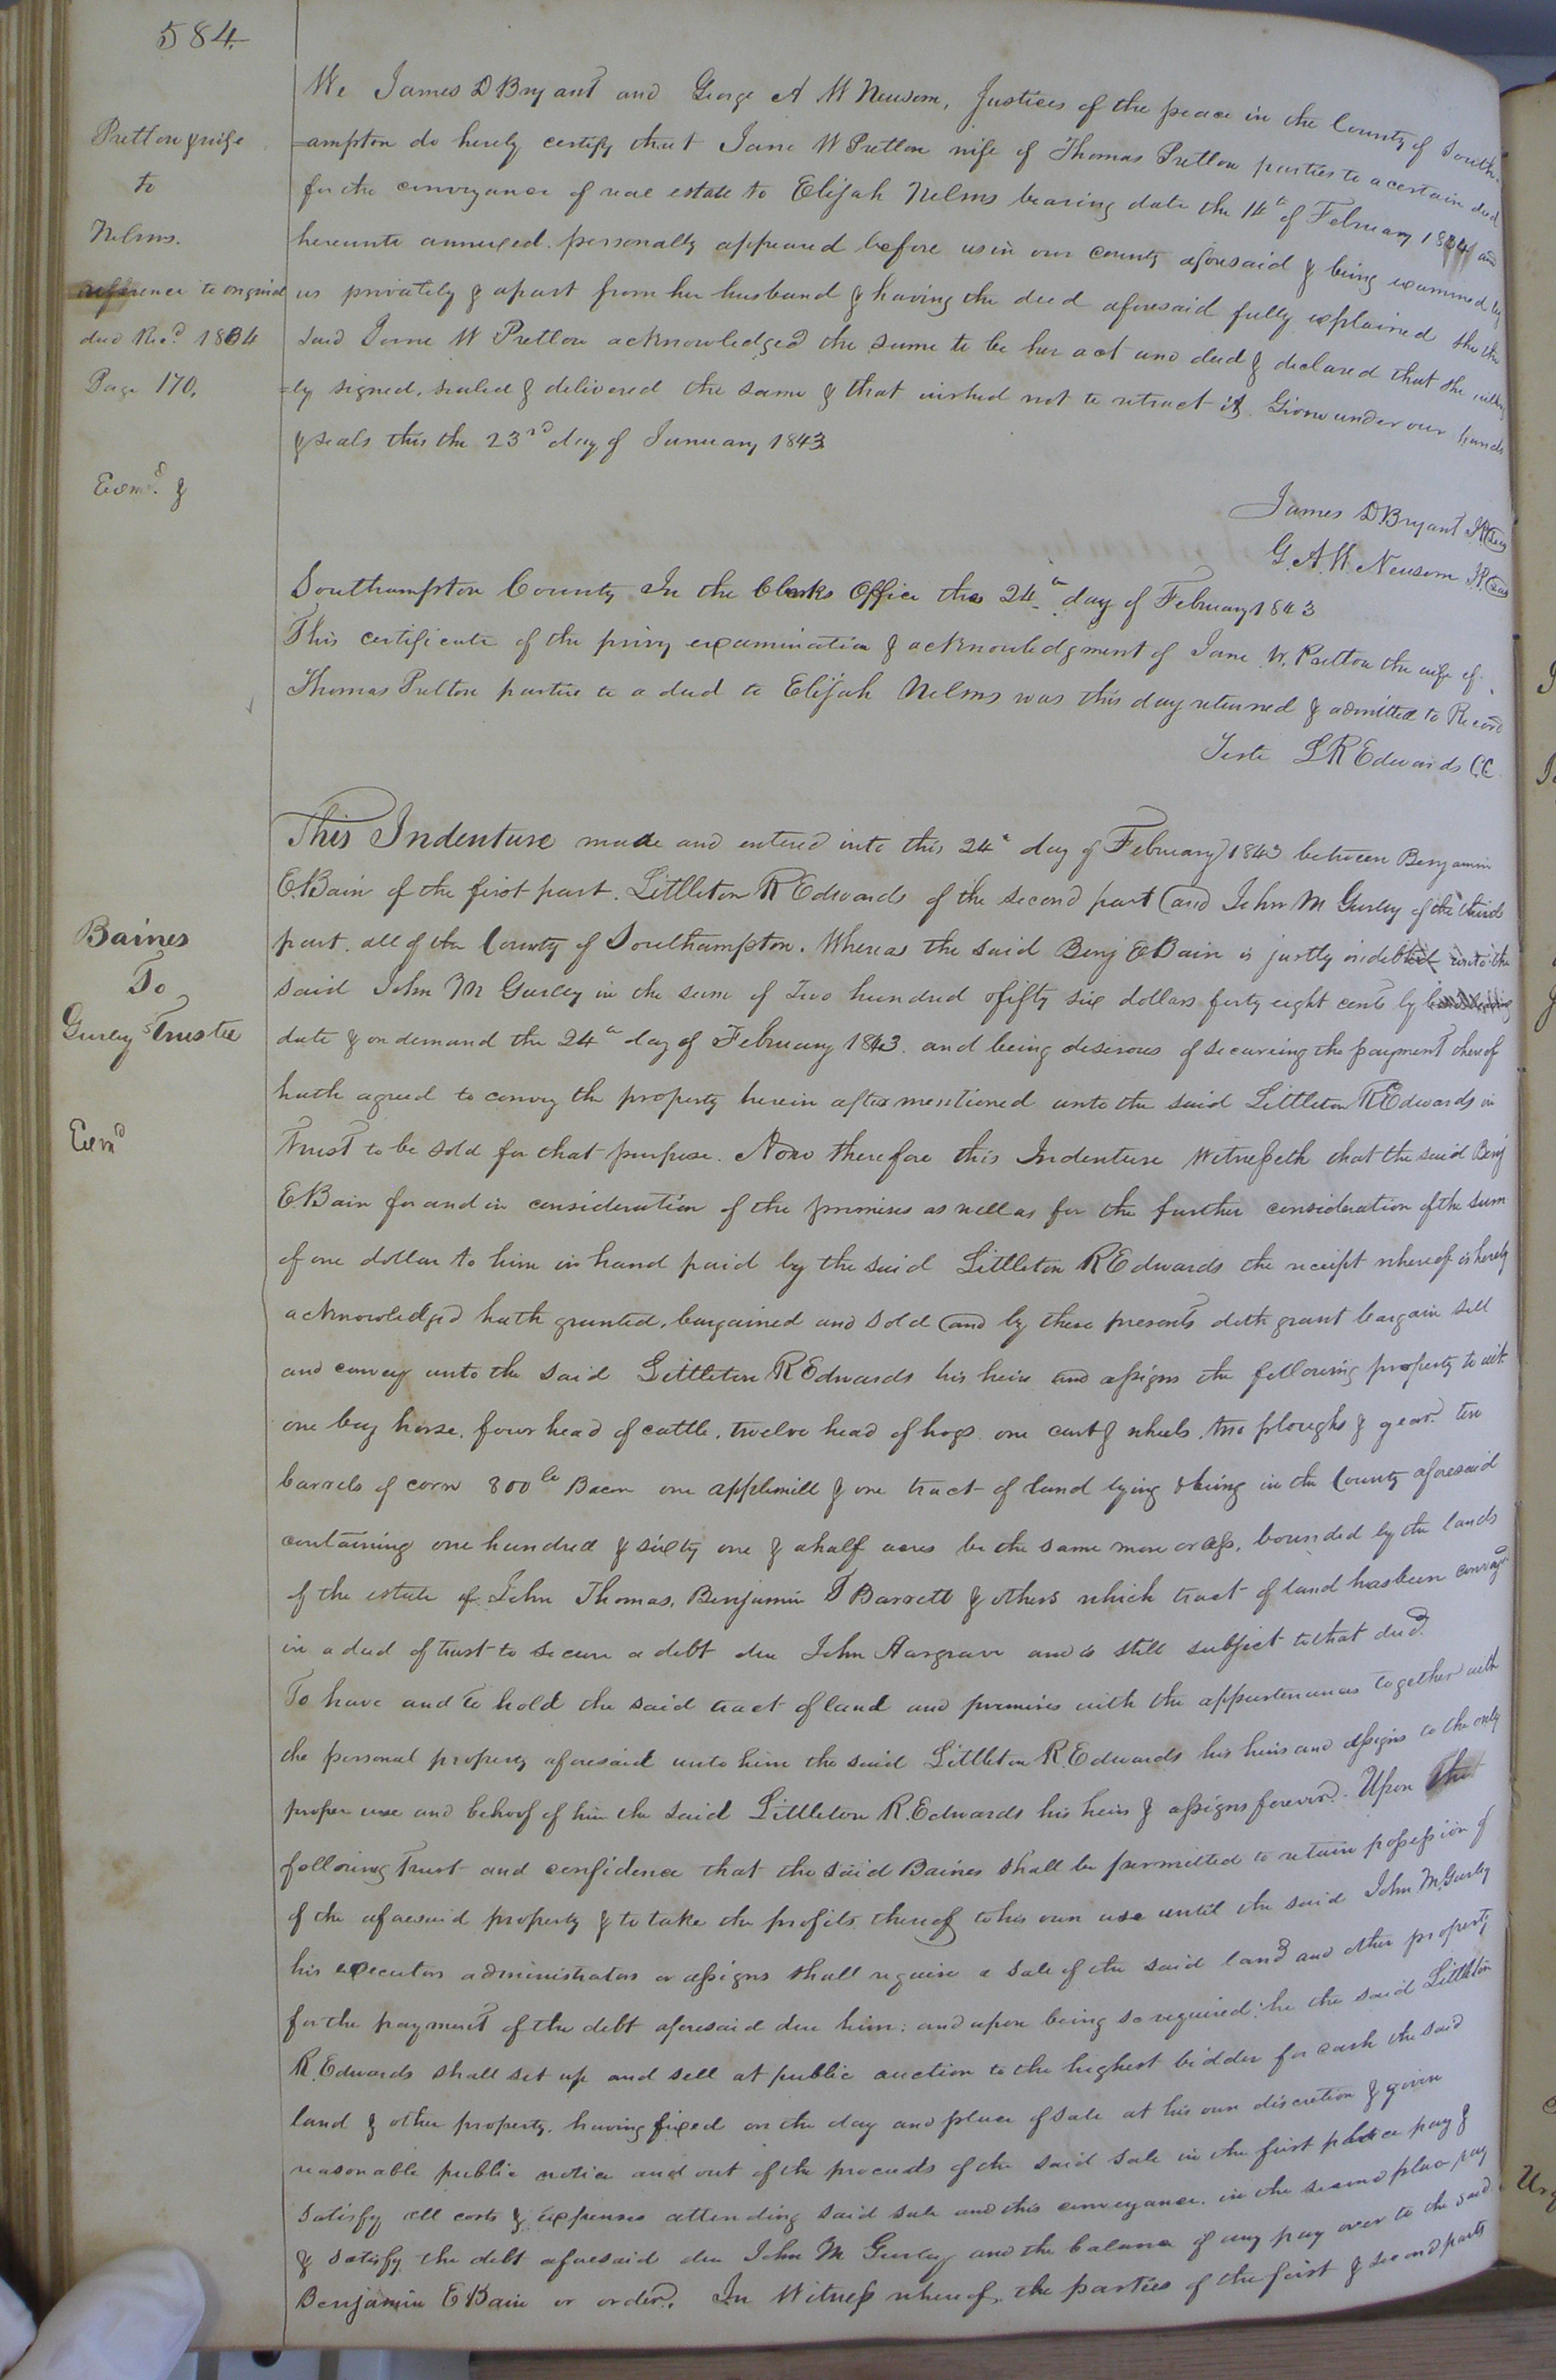 584.
Pretlow & wife
to
Nelms.
reference to original
deed Recd. 1834
Page 170.
Exmd. &
We James D Bryant and George A W Newsom, Justices of the peace in the County of South-
=ampton do hereby certify that Jane W Pretlow wife of Thomas Pretlow parties to a certain deed
for the conveyance of real estate to Elijah Nelms bearing date the 14th of February 1834 and
hereunto annexed. personally appeared before us in our county aforesaid & being examined by
us privately & apart from her husband & having the deed aforesaid fully explained she the
said Jane W Pretlow acknowledged the same to be her act and deed & declared that she willing
=ly signed, sealed & delivered the same & that wished not to retract it. Given under our hands
& seals this the 23rd day of January 1843
James D Bryant JP (Seal)
G. A. W. Newsom JP. (Seal)
Southampton County In the Clerks Office the 24th day of February 1843
This certificate of the privy examination & acknowledgment of Jane W. Pretlow the wife of
Thomas Pretlow parties to a deed to Elijah Nelms was this day returned & admitted to Record
Teste L R Edwards CC.
Baines
To
Gurley's Trustee
Exmd
This Indenture made and entered into this 24th day of February 1843 between Benjamin
E. Bain of the first part. Littleton R Edwards of the second part and John M Gurley of the third
part. all of the County of Southampton. Whereas the said Benj E Bain is justly indebted unto the
said John M Gurley in the sum of Two hundred & fifty six dollars forty eight cents by
date & on demand the 24th day of February 1843. and being desirous of secureing the payment thereof
hath agreed to convey the property herein after mentioned unto the said Littleton R Edwards in
Trust to be sold for that purpose. Now therefore this Indenture Witnesseth that the said Benj
E. Bain for and in consideration of the premises as well as for the further consideration of the sum
of one dollar to him in hand paid by the said Littleton R Edwards the receipt whereof is hereby
acknowledged hath granted, bargained and sold and by these presents doth grant bargain sell
and convey unto the said Littleton R Edwards his heirs and assigns the following property to wit
one bay horse, four head of cattle, twelve head of hogs one cart & wheels, two ploughs & gear. ten
barrels of corn 800 lb Bacon one applemill & one tract of land lying & being in the County aforesaid
containing one hundred & sixty one & a half acres be the same more or less, bounded by the lands
of the estate of John Thomas, Benjamin T Barrett & others which tract of land has been conveyd
in a deed of trust to secure a debt due John Hargrave and is still subject to that deed.
To have and to hold the said tract of land and premises with the appurtenances together with
the personal property aforesaid unto him the said Littleton R. Edwards his heirs and assigns to the only
proper use and behoof of him the said Littleton R. Edwards his heirs & assigns forever. Upon the
following Trust and confidence that the said Baines shall be permitted to retain possession of
of the aforesaid property & to take the profits thereof to his own use until the said John M. Gurley
his executors administrators or assigns shall require a sale of the said land and other property
for the payment of the debt aforesaid due him: and upon being so required: he the said Littleton
R. Edwards shall set up and sell at public auction to the highest bidder for cash the said
land & other property. having fixed on the day and place of sale at his own discretion & given
reasonable public notice and out of the proceeds of the said sale in the first place pay &
satisfy all costs & expenses attending said sale and this conveyance. in the second place pay
& satisfy the debt aforesaid due John M Gurley and the balance if any pay over to the said
Benjamin E Bain or order. In Witness whereof, the parties of the first & second parts